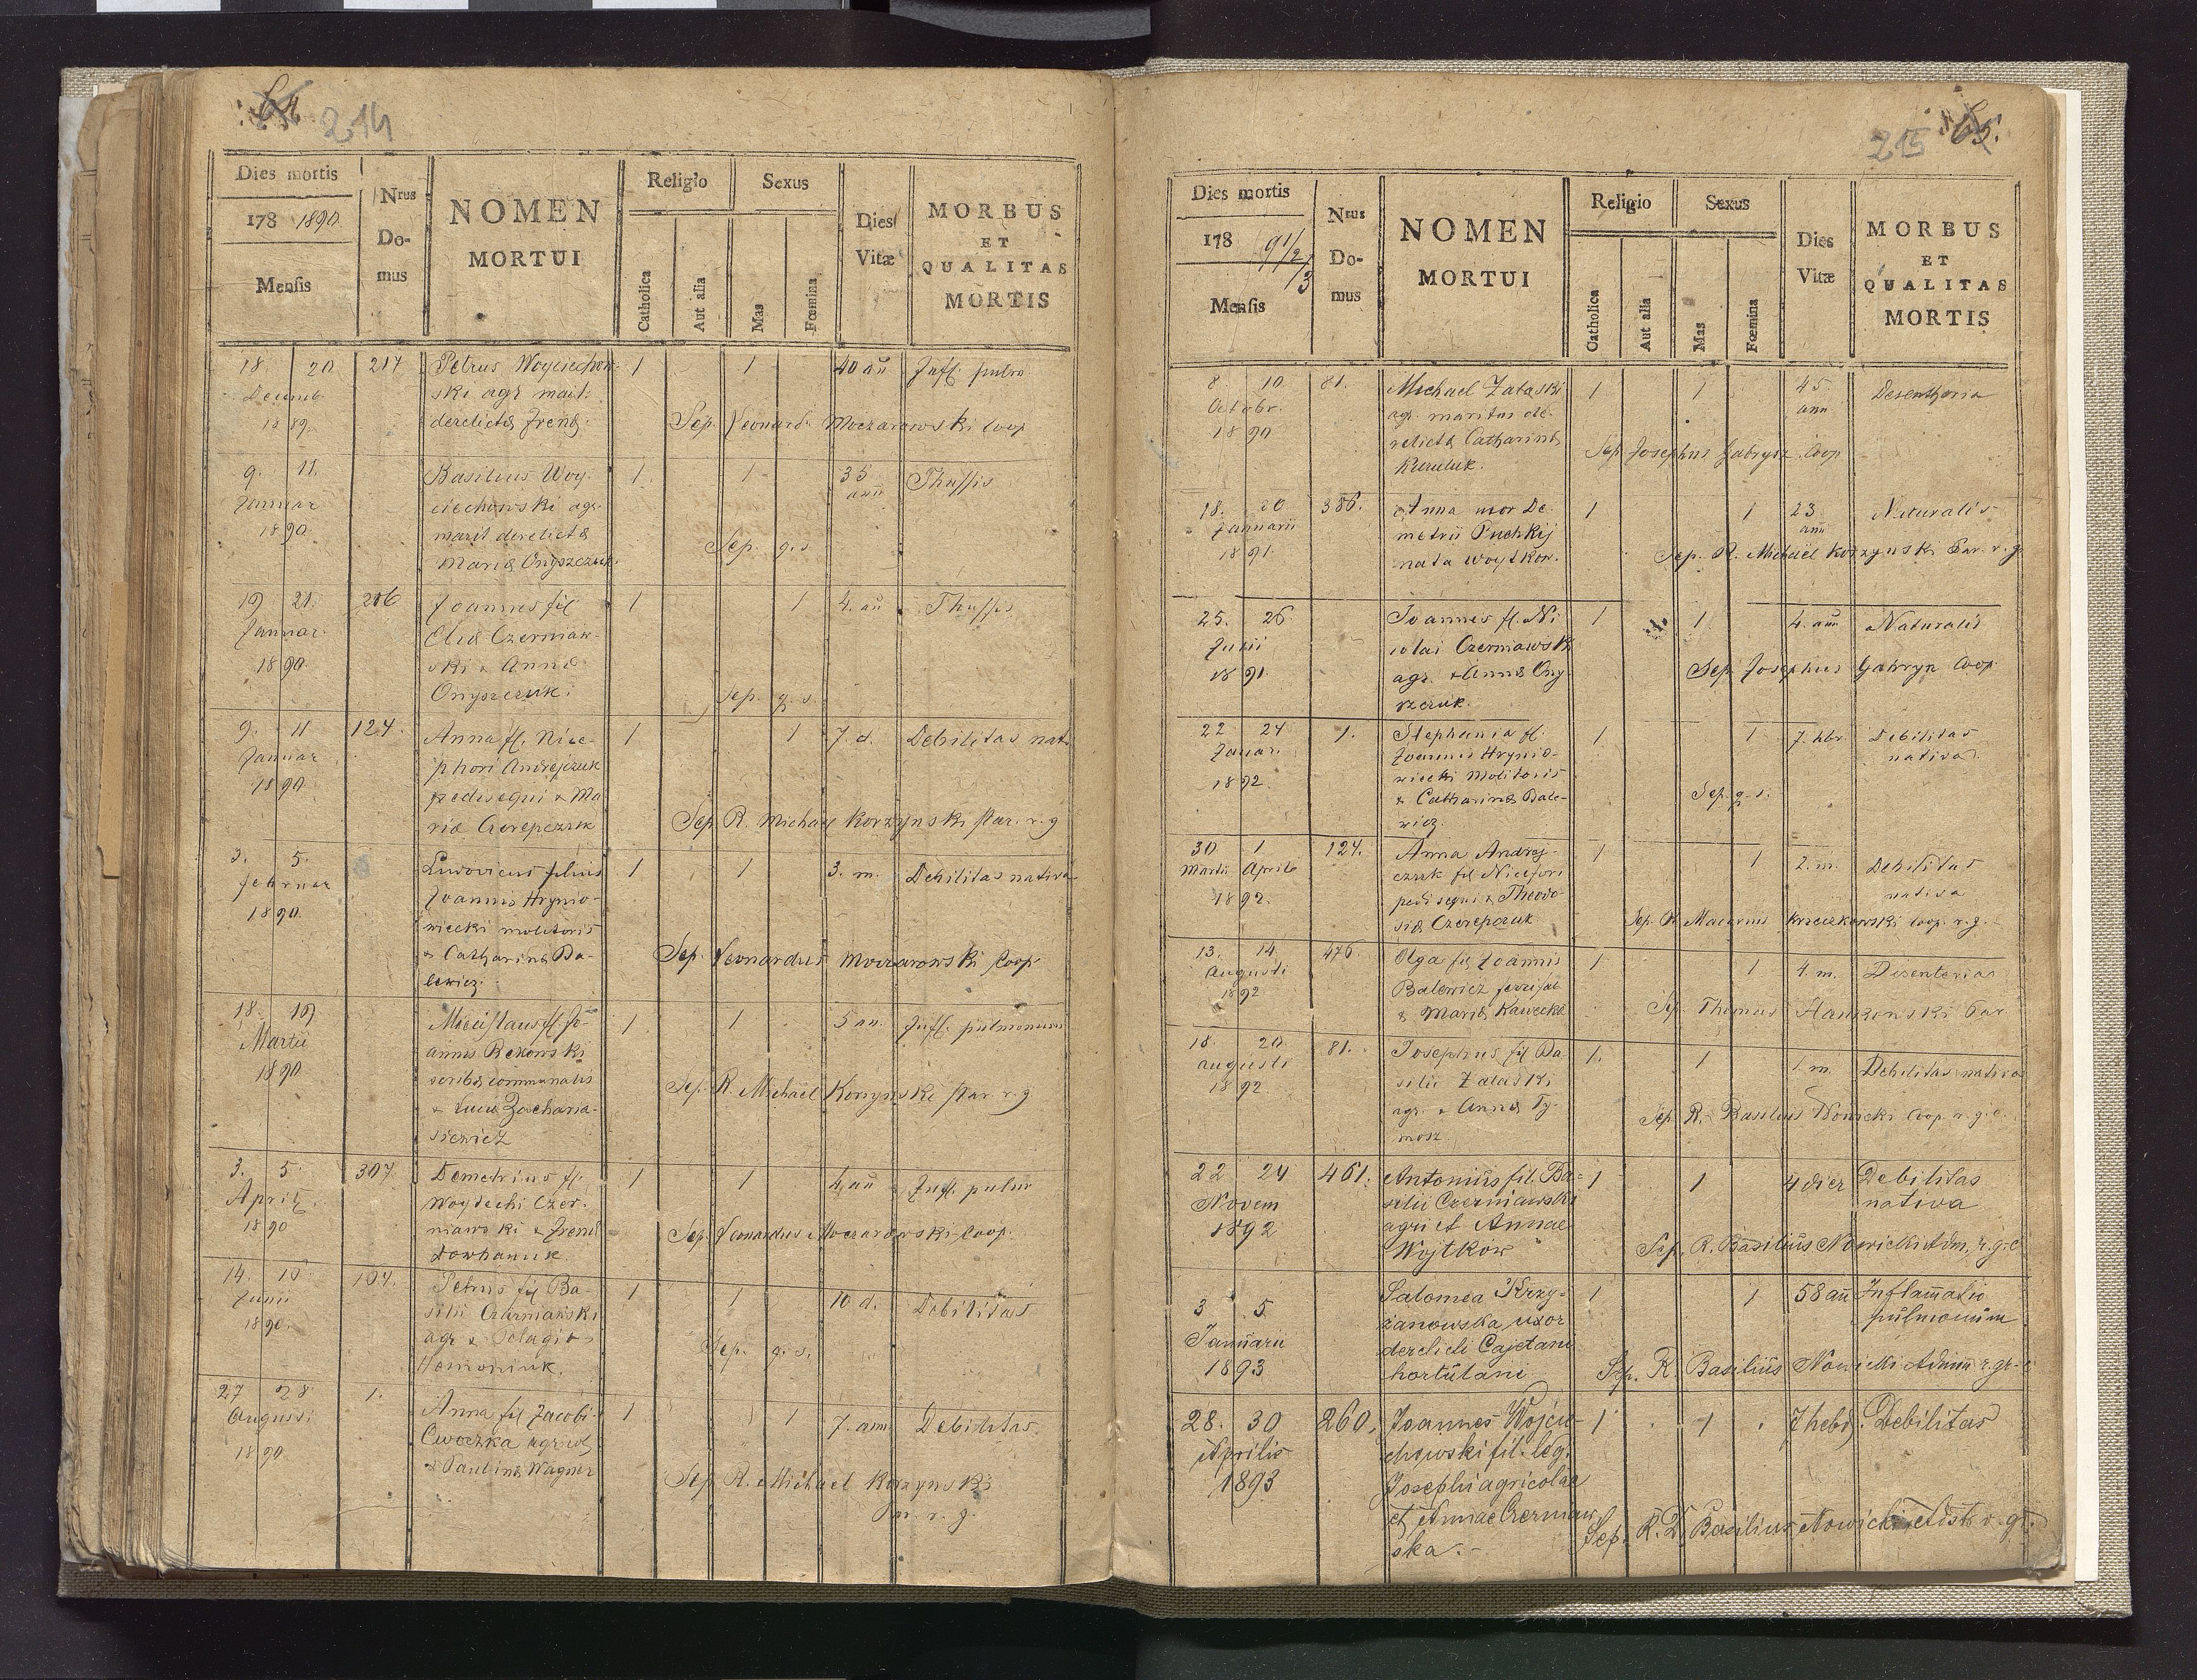 214
Dies mortis
178 1890.
Mensis
Nrus
Do-
mus
NOMEN
MORTUI
Religio
Catholica
Aut alia
Sexus
Mas
Fœmina
Dies
Vitæ
MORBUS
ET
QUALITAS
MORTIS
18 20 217 Petrus Woyciechow- 1 1 40 añ Infl. pulm
Decemb ski agr marit:
1889. derelicta Irena. Sep. Leonard. Moczarowski Coop
9. 11. Basilius Woy- 1. 1 35 Thussis
Januar ciechowski agr. ann
1890. marit derelicta Sep. q. s.
Maria Onyszczuk.
19 21. 206 Joannes fil 1 1 4. añ Thussis
Januar. Elia Czerniaw-
1890. ski & Anna
Onyszczuk. Sep. q. s.
9. 11 124. Anna fl. Nice- 1 1 7. d. Debilitas nat.
Januar phori Andrejczuk
1890 pedisequi & Ma
ria Czerepczuk Sep. R. Michael Korzynski par. r. g
3. 5. Ludovicus filius 1 1 3. m. Debilitas nativa
Februar Joannis Hrynio-
1890. wiecki molitoris
& Catharina Ba- Sep. Leonardus Moczarowski Coop
lewicz.
18. 19 Miecislaus fl. Jo- 1. 1 5 an. Infl. pulmonum
Martii annis Rekowski
1890 scriba communalis Sep. R. Michael Korzynski par r. g
& Lucia Zacharia-
siewicz
3. 5. 307 Demetrius fl. 1 1 4 añ Infl. pulm
April. Woyciechi Czer-
1890 niawski & Irena Sep. Leonardus Moczarowski Coop.
Dowhaniuk.
14. 15 107. Petrus fil Ba- 1 1 10 d. Debilitas
Junii silii Czerniawski
1890. agr & Pelagia Sep. q. s.
Homoniuk.
27 28 1. Anna fil Jacobi 1 1 7. ann Debilitas.
Augusti Cwoczka agricol
1890. & Paulina Wagner Sep R. Michael Korzynski
Par. r. g.
215 65.
Dies mortis
178 91/2/3
Mensis
Nrus
Do-
mus
NOMEN
MORTUI
Religio
Catholica
Aut alia
Sexus
Mas
Fœmina
Dies
Vitæ
MORBUS
ET
QUALITAS
MORTIS
8 10 81. Michael Zalaski 1 1 45 Desenthoria
Octobr. agr. maritus de- ann
1890 relicta Catharina Sep Josephus Gabrysz Coop
Kuruluk.
18. 20 386. Anna uxor De- 1 1 23 Naturalis
Januarii metrii Puchkij ann
1891. nata Woytkow. Sep. R. Michaël Korzynski Par. r. g.
25. 26 Joannes fl. Ni- 1 1 4. ann Naturalis
Junii colai Czerniawski
1891 agr. & Anna Ony- Sep. Josephus Gabrysz Coop
szczuk.
22 24 1. Stephania fl. 1 1 7. hbr. Debilitas
Januar. Joannis Hrynio- nativa.
1892. wiecki Molitoris Sep. q. s.
& Catharina Bale-
wicz.
30 1 124. Anna Andrej- 1 1 2. m. Debilitas
Martii Aprile czuk fil Nicefori nativa
1892. pedisequi & Theodo- Sep. R. Macarius Krzeczkowski Coop. r. g.
sia Czerepczuk
13. 14. 476. Olga fil Joannis 1 1 4. m. Disenterias
Augusti Balewicz
1892 & Maria Kawecka Sep. Thomas Par
18. 20 81. Josephus fil Ba- 1. 1 1. m. Debilitas nativa
augusti silii Zalaski
1892 agr. & Anna Ty- Sep. R. Basilius Nowicki Coop r. g. c.
mosz
22 24 461. Antonius fil. Ba- 1 1 4 dies Debilitas
Novem silii Czerniawski nativa
1892 agri et Annae Sep. R. Basilius Nowicki Adm. r. g. c
Wojtkow
3 5 Salomea Krzy- 1 1 58 añ Inflamatio
Januarii żanowska uxor pulmonum
1893 derelicti Cajetani
hortulani Sep. R. Basilius Nowicki Admin r. gr. c
28. 30 260. Joannes Wojcie- 1 1 7 hebd. Debilitas
Aprilis chowski fil. leg.
1893 Josephi agricolae
et Annae Czerniaw- Sep. R. D. Basilius Nowicki Adst. r. g.
ska.-